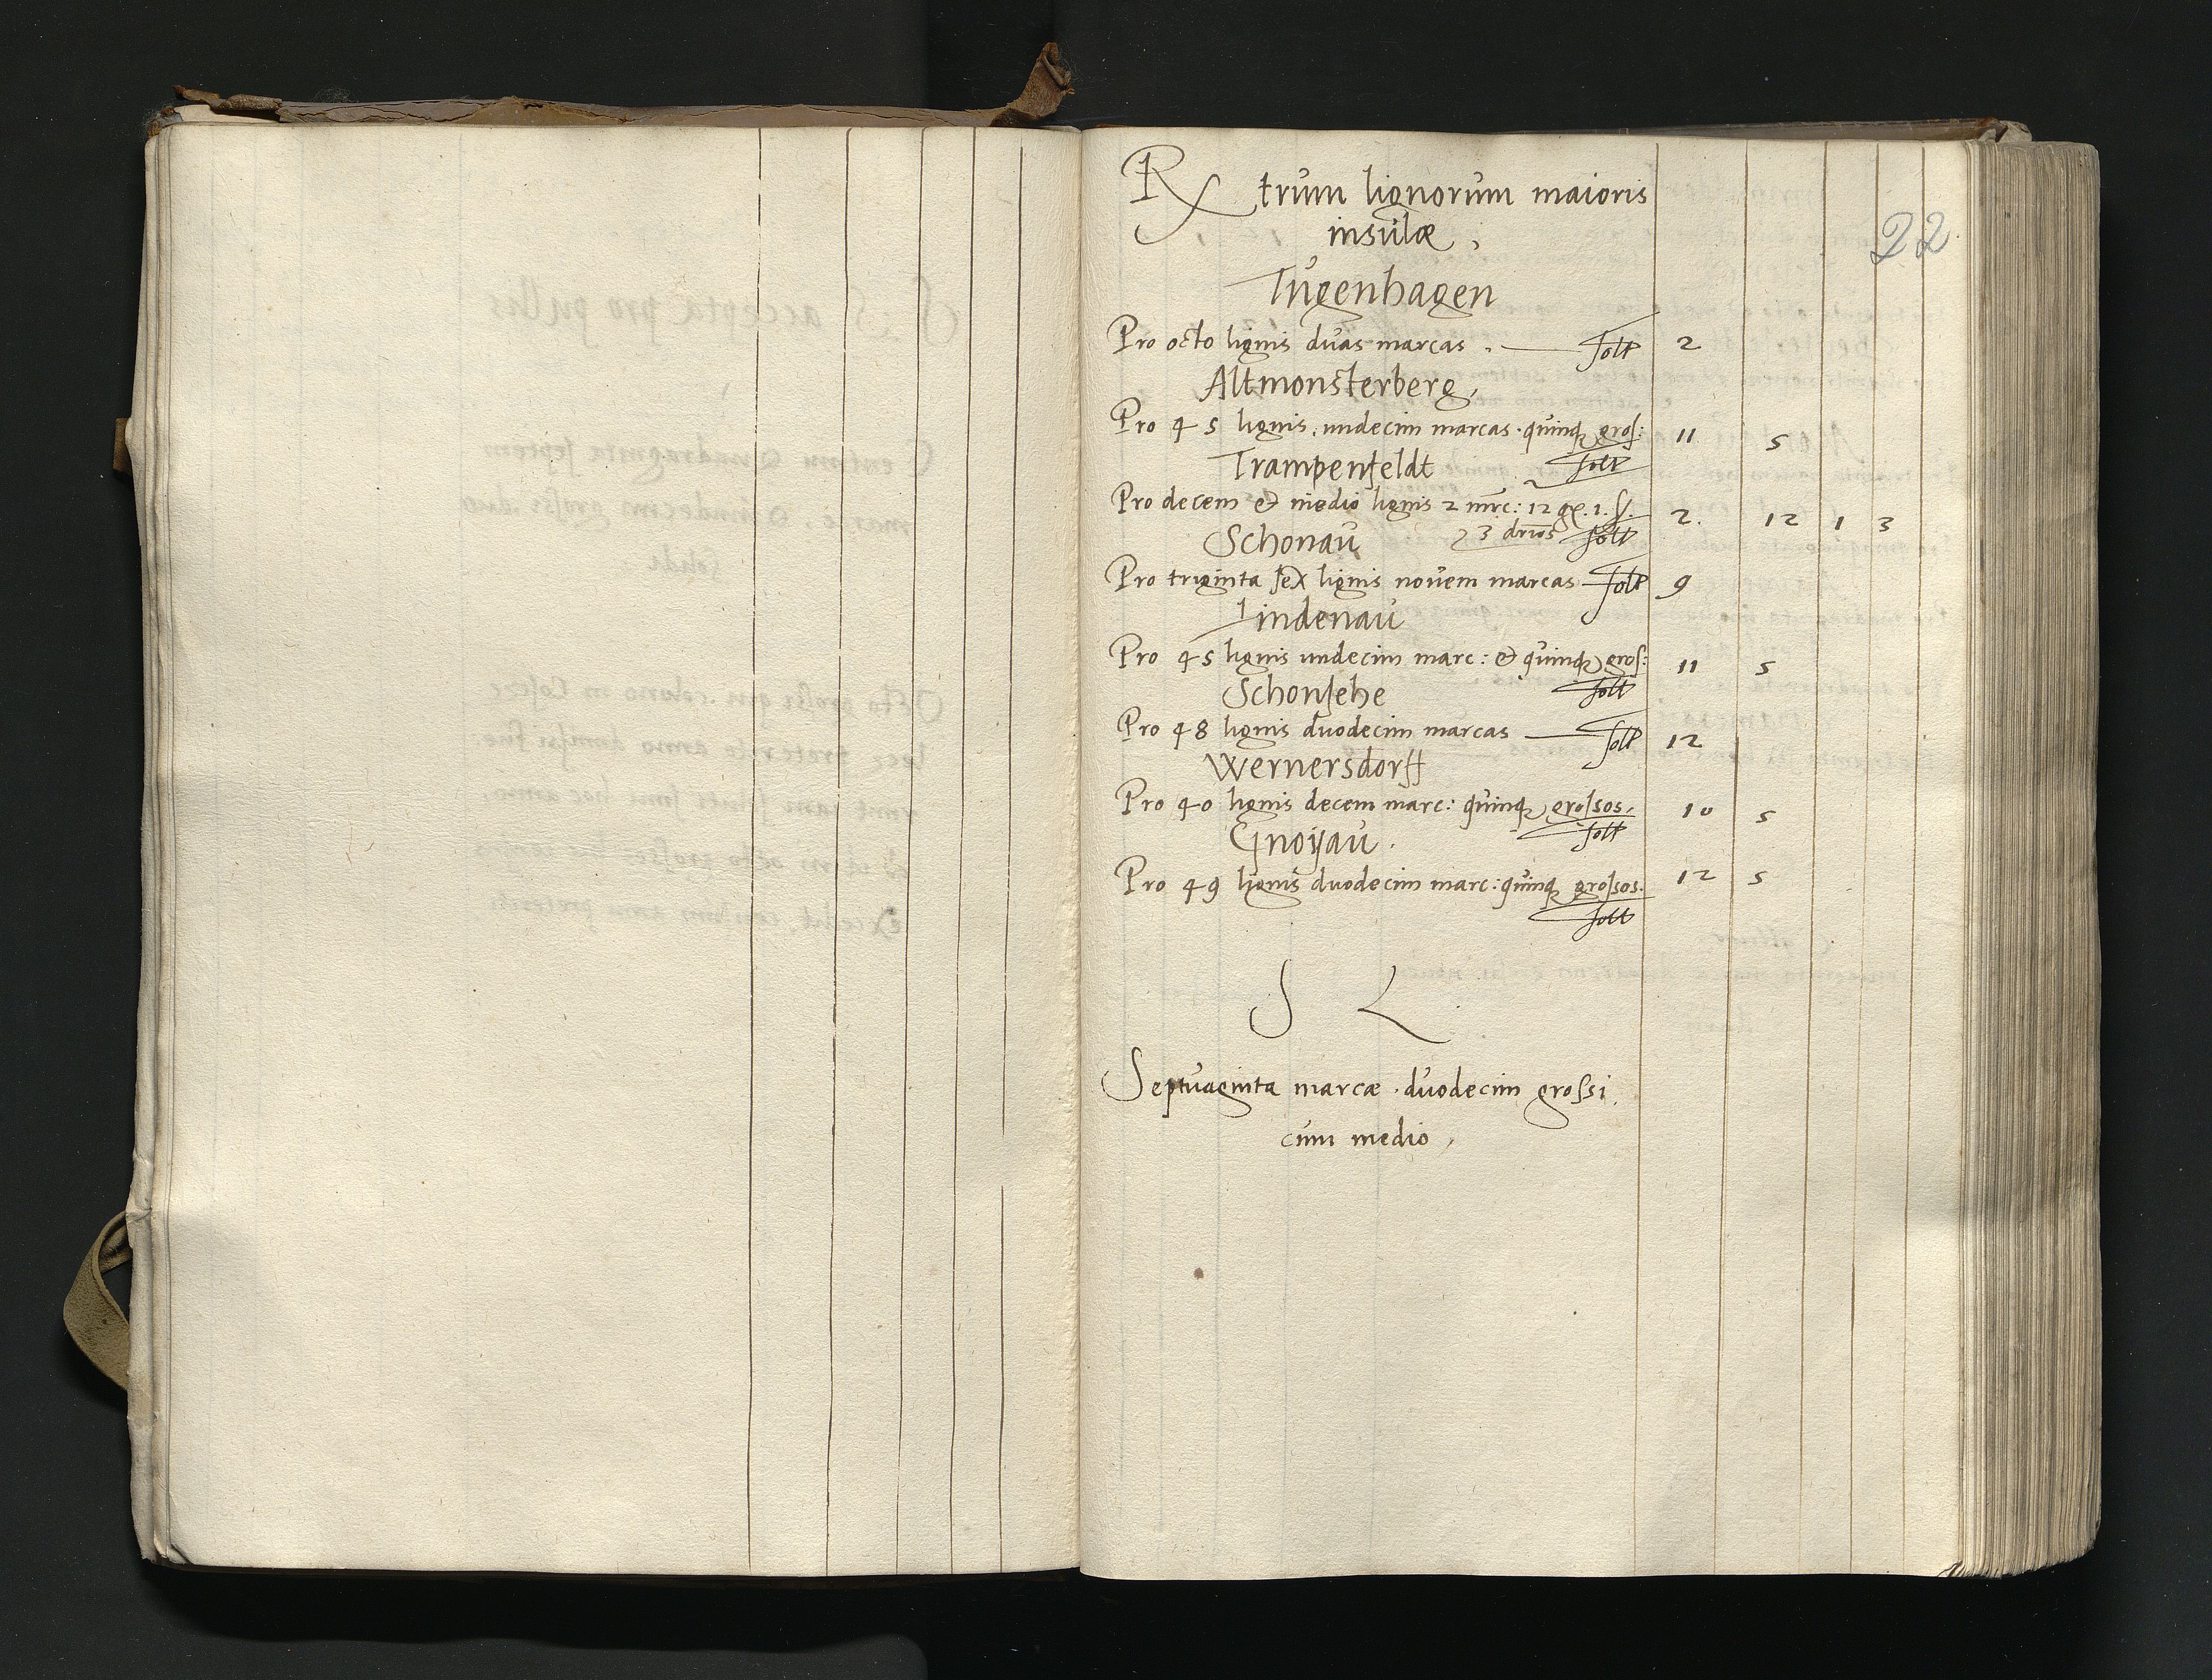 22
Rx trum lignorum maioris
insulæ.
Tugenhagen
Pro octo lignis duas marcas. solt 2
Altmonsterberg,
Pro 45 lignis, undecim marcas. quinq gros: 11 5
Trampenfeldt solt
Pro decem et medio lignis 2 mrc: 12 gr. 1. s. 2. 12 1 3
Schonau 3 dnos solt
Pro triginta sex lignis novem marcas solt 9
Lindenau
Pro 45 lignis undecim marc: et quinq gros: 11 5
Schonsehe solt
Pro 48 lignis duodecim marcas solt 12
Wernersdorff
Pro 40 lignis decem marc: quinq grossos. 10 5
Gnoyau. solt
Pro 49 lignis duodecim marc: quinq grossos. 12 5
solt
S L
Septuaginta marcæ. duodecim grossi
cum medio,